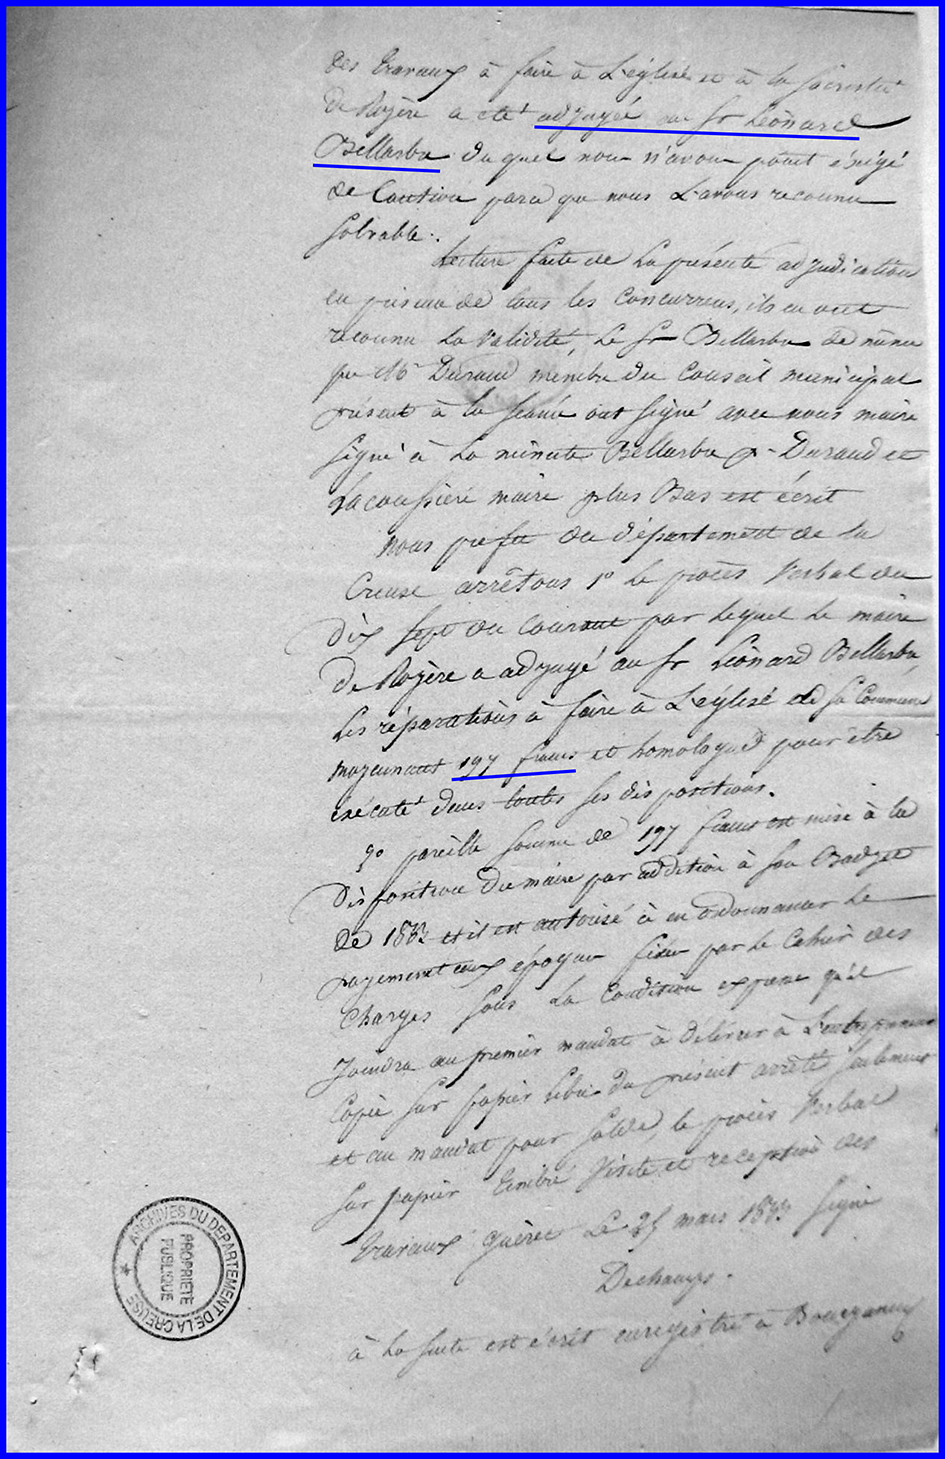 des travaux à faire à L'église et à la sacristie
de Royère a eté adjugée au Sr Léonard
Bellarbre duquel nous n'avons point éxigé
de Caution parce que nous L'avons reconnu
solvable.
Lecture faite de La présente adjudication
en présence de tous les Concurrens, ils en ont
reconnu La validité, Le Sr Bellarbre de même
que Mr Durand membre du Conseil municipal
présent à la séance ont signé avec nous maire
signé à La minute Bellarbre Durand et
Lacoussière maire plus Bas est écrit
Nous préfet du département de la
Creuse arrêtons 1° Le procès Verbal du
dix sept du Courant par Lequel Le maire
de Royère a adjugé au Sr Léonard Bellarbre,
Les réparations à faire à L'église de sa Commune
moyennant 197 francs est homologué pour être
éxecuté dans toutes ses dispositions.
2° pareille somme de 197 francs est mise à la
disposition du maire par addition à son Budget
de 1833 et il est autorisé à en ordonnancer Le
payement aux époques fixées par le Cahier des
Charges sous La Condition expresse qu'il
Joindra au premier mandat à délivrer à L'entrepreneur
Copie sur papier libre du présent arrêté seulement
et au mandat pour solde, le procès Verbal
sur papier timbré visite et reception des
travaux Guéret Le 25 mars 1833 signé
Dechamps.
à La suite est écrit enregistré à Bourganeuf
ARCHIVES DU DEPARTEMENT DE LA CREUSE
PROPRIETE
PUBLIQUE